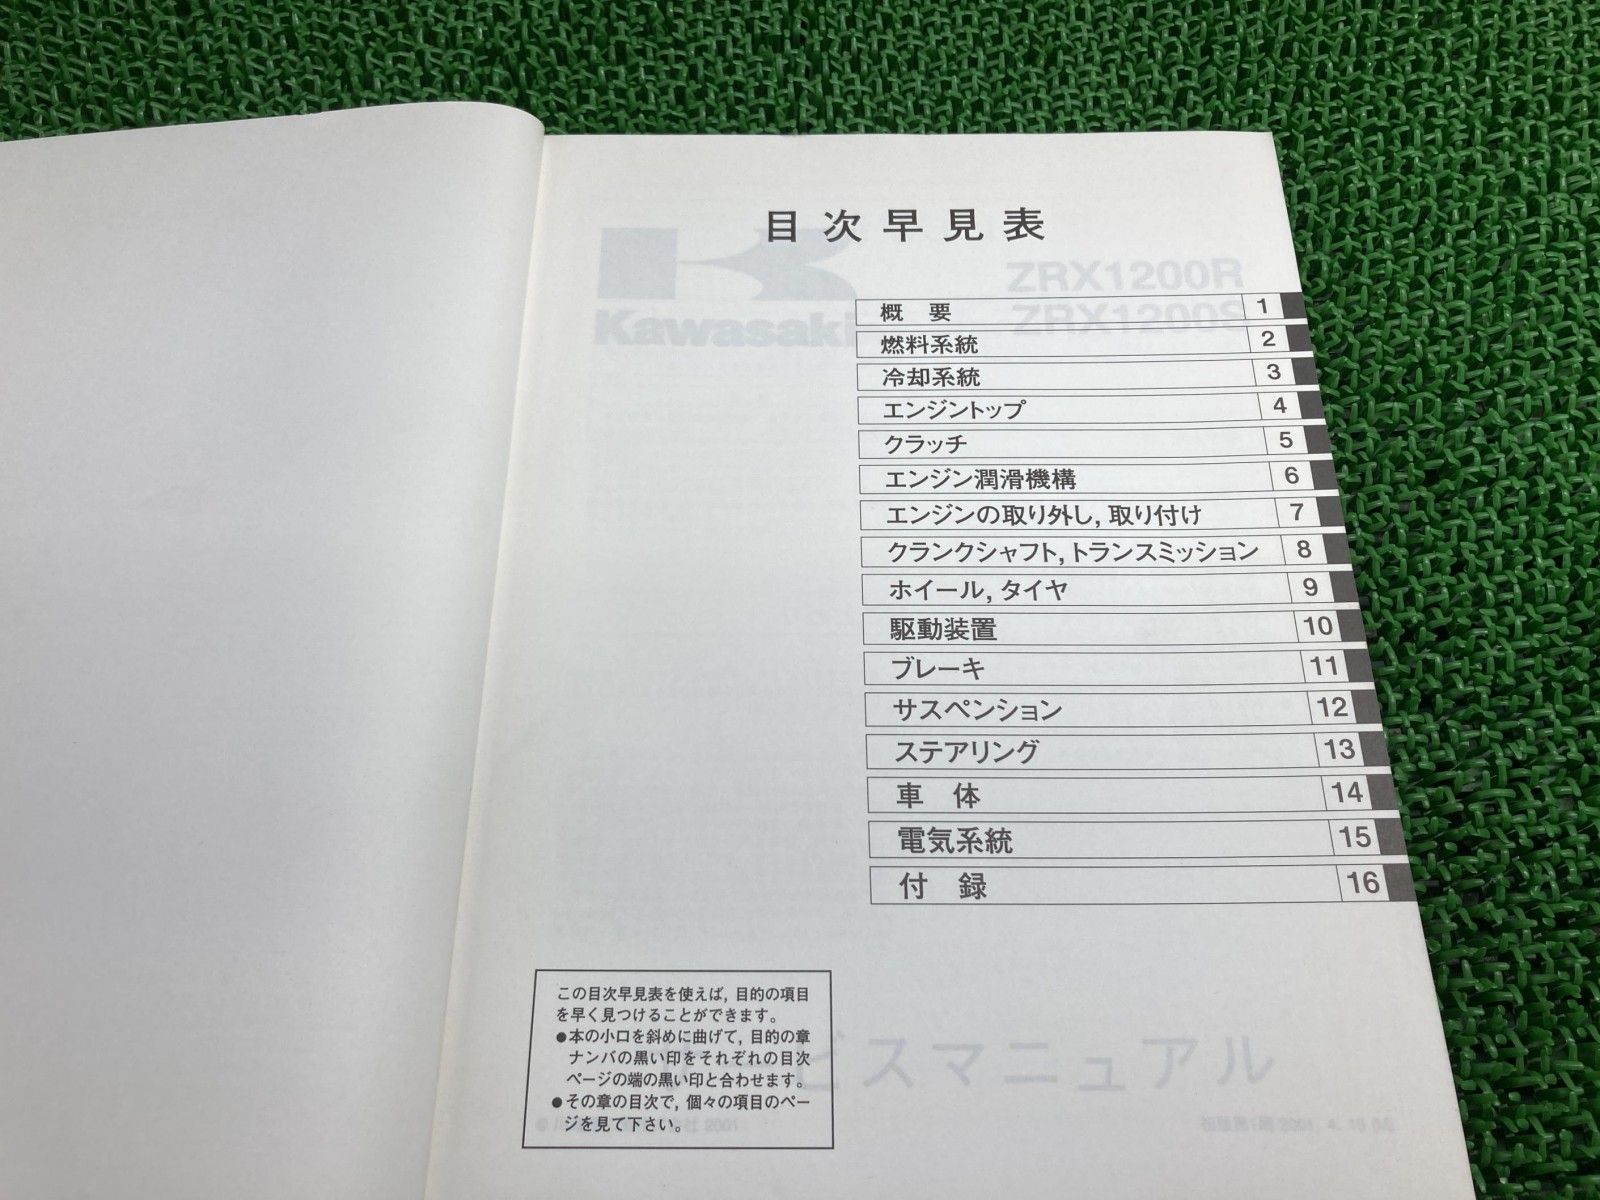 目次早見表
Kawasaki
ZRX1200R
ZRX1200S
概 要 1
燃料系統 2
冷却系統 3
エンジントップ 4
クラッチ 5
エンジン潤滑機構 6
エンジンの取り外し, 取り付け 7
クランクシャフト, トランスミッション 8
ホイール, タイヤ 9
駆動装置 10
ブレーキ 11
サスペンション 12
ステアリング 13
車 体 14
電気系統 15
付 録 16
この目次早見表を使えば, 目的の項目
を早く見つけることができます。
●本の小口を斜めに曲げて, 目的の章
ナンバの黒い印をそれぞれの目次
ページの端の黒い印と合わせます。
●その章の目次で, 個々の項目のペー
ジを見て下さい。
ビスマニュアル
2001